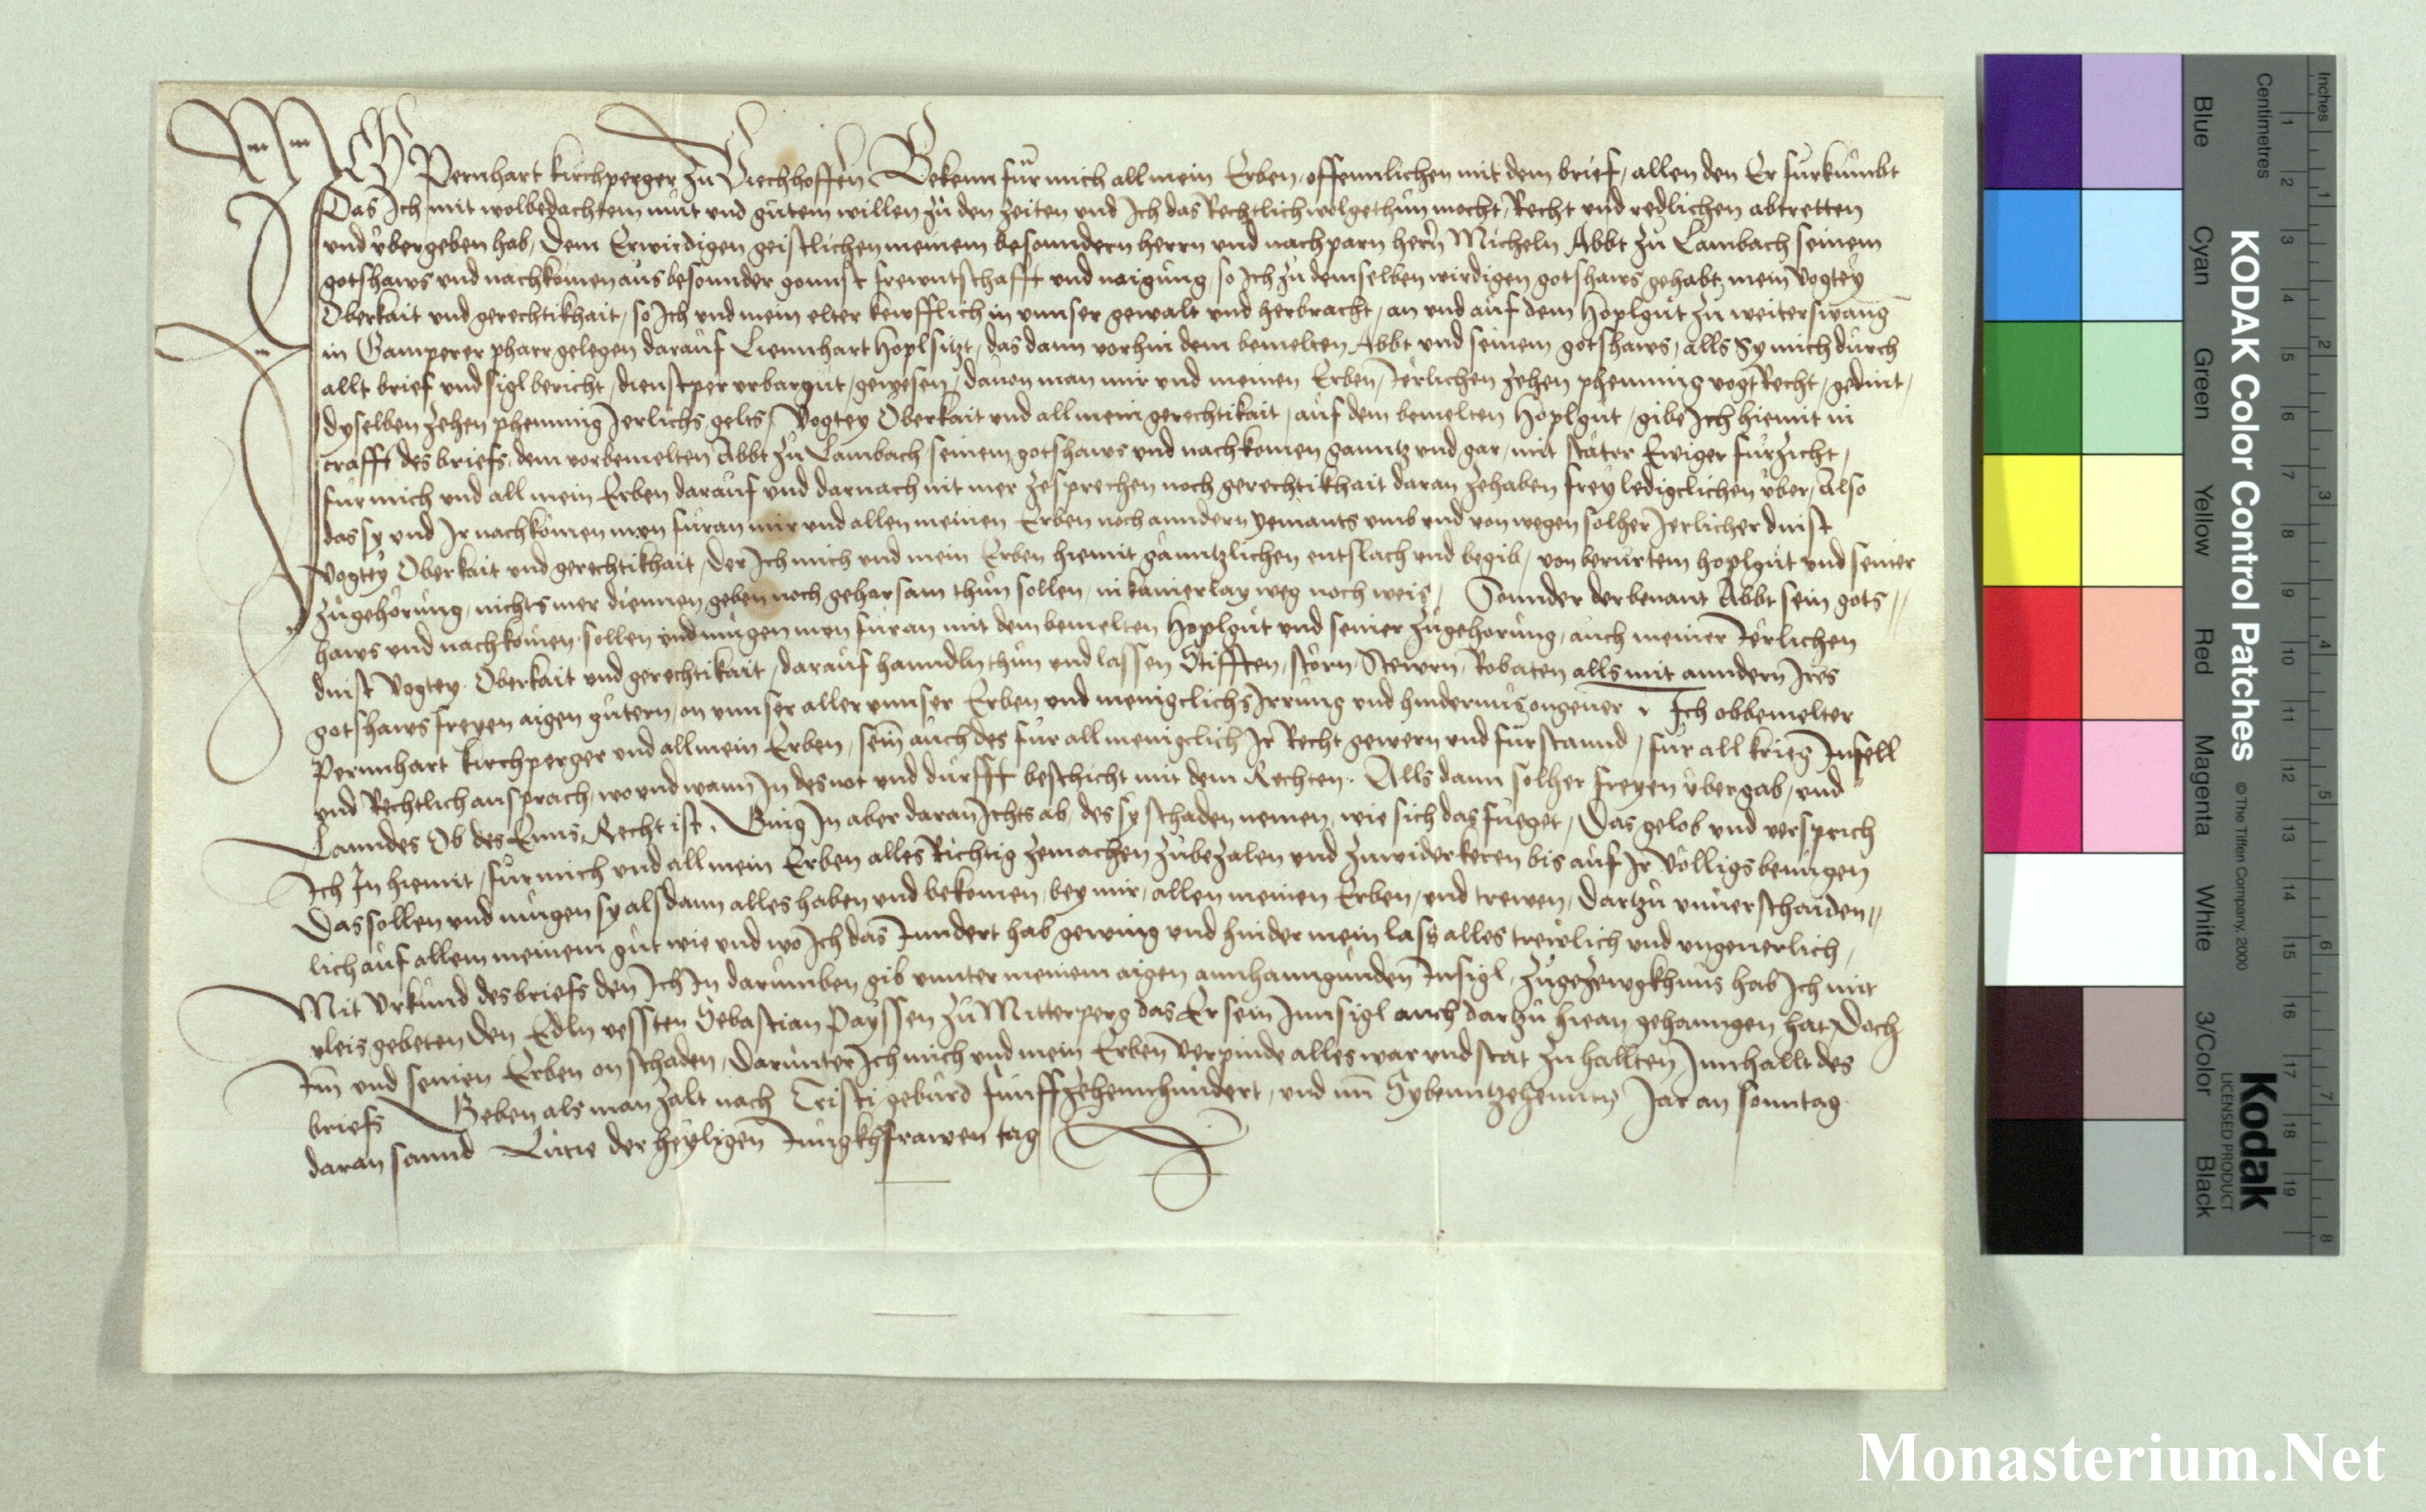 Ich Pernhart Kirchperger zu Viechhoffen Bekenn für mich all mein Erben offennlichen mit dem brief, allen den Er fürkumbt
Das Ich mit wolbedachtem mut und gutem willen zu den zeiten und Ich das Rechtlich wol gethun mocht, Recht und redlichen abtretten
und ubergeben hab, Dem Erwirdigen geistlichen meinem besonndern herrn und nachparn herrn Micheln Abbt zu Lambach seinem
gotshaws und nachkomen aus besonnder gonnst frewntschafft und naigung, so Ich zu demselben wirdigen gotshaws gehabt, mein Vogtey
Oberkait und gerechtikhait, so Ich und mein elter kewfflich in unnser gewalt und herbracht, an und auf dem Hoplgut zu weiterswang
in Gamperer pharr gelegen darauf Liennhart Hopl sitzt, das dann vorhin dem bemelten Abbt und seinem gotshaws, alls Sy mich durch
allt brief und sigl bericht, dienstper urbargut, gewesen, dauon man mir und meinen Erben, Jerlichen zehen phenning vogt Recht, gedint,
dyselben zehen phenning Jerlichs gelts, Vogtey Oberkait und all mein gerechtikait, auf dem bemelten Hoplgut, gib Ich hiemit in
crafft des briefs, dem vorbemelten Abbt zu Lambach seinem gotshaws und nachkomen ganntz und gar, mit stäter Ewiger fürzicht,
für mich und all mein Erben darauf und darnach nit mer zesprechen noch gerechtikhait daran zehaben frey lediclichen über, Also
das sy und Ir nachkomen nun füran mir und allen meinen Erben noch anndern yemants umb und von wegen solher Jerlicher dinst
Vogtey Oberkait und gerechtikhait, der Ich mich und mein Erben hiemit ganntzlichen entslach und begib, von berürtem hoplgut und seiner
zugehörung, nichts mer diennen geben noch gehorsam thun sollen, in kainerlay weg noch weis, Sonnder der benant Abbt sein gots
haws und nachkomen sollen und mugen nun füran mit dem bemelten Hoplgut und seiner zugehorung, auch meiner Jerlichen
dinst Vogtey Oberkait und gerechtikait, darauf hanndln thun und lassen Stifften, storn, Stewrn, Robaten alls mit anndern Ires
gotshaws freyen aigen gütern, on unnser aller unnser Erben und menigclichs Irrung und hindernus ongeuer, Ich obbemelter
Pernnhart Kirchperger und all mein Erben, sein auch des für allmenigclich Ir Recht gewern und fürstannd, für all krieg Infell
und Rechtlich ansprach, wo und wann In des not und dürfft beschicht mit dem Rechten. Alls dann solher freyen übergab, und
Lanndes Ob der Enns Recht ist, Gieng In aber daran Ichts ab, des sy schaden nemen, wie sich das füeget, Das gelob und versprich
Ich In hiemit, für mich und all mein Erben alles Richtig zemachen zubezalen und zuwiderkeren bis auf Ir völligs benügen
Das sollen und mugen sy als dann alles haben und bekomen, bey mir, allen meinen Erben, und trewen, Dartzu unuerschaiden
lich auf allem meinem gut wie und wo Ich das Inndert hab gewing und hinder mein lass alles trewlich und ungeuerlich,
Mit Urkund des briefs den Ich In darumben gib unnter meinem aigen annhanngunden Insigl, zu gezewgkhnus hab Ich mit
vleis gebeten den Edln vessten Sebastian Payssen zu Mitterperg das Er sein Innsigl auch dartzu hieran gehanngen hat, Doch
Im und seinen Erben on schaden, Darunter Ich mich und mein Erben verpinde alles war und stat zu hallten Innhallt des
briefs Geben als man zalt nach Cristi geburd fünffzehennhundert, und im Sybenntzehennten Jar an sonntag
daran sannd Lucie der heyligen Jungkhfrawen tag
Inches
Centimetres
1 2 3 4 5 6 7 8
1 2 3 4 5 6 7 8 9 10 11 12 13 14 15 16 17 18 19
KODAK Color Control Patches
© The Tiffen Company, 2000
Kodak
LICENSED PRODUCT
Blue
Cyan
Green
Yellow
Red
Magenta
White
3/Color
Black
Monasterium.Net